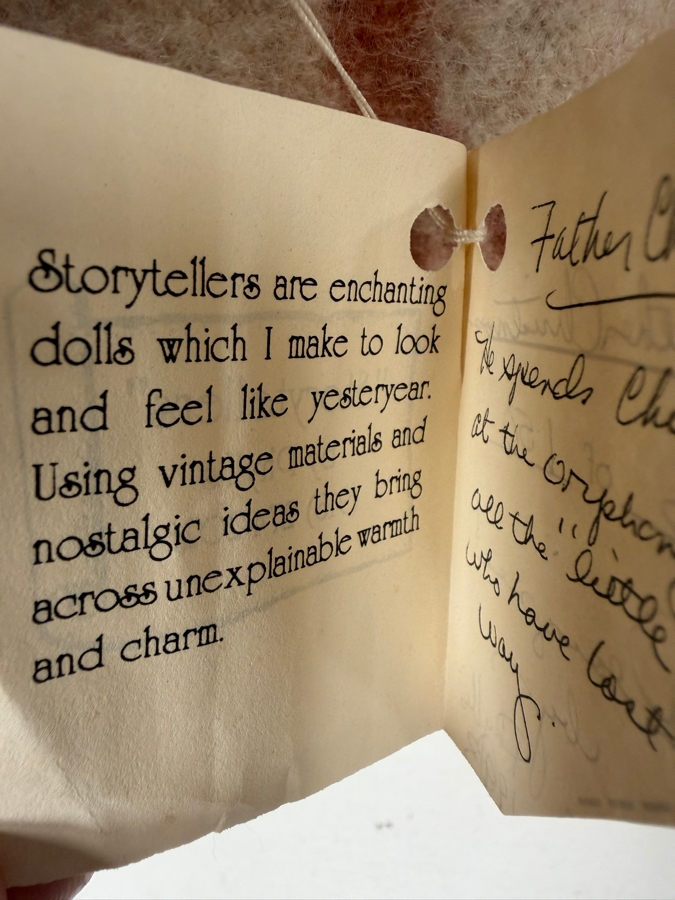 Storytellers are enchanting
dolls which I make to look
and feel like yesteryear.
Using vintage materials and
nostalgic ideas they bring
across unexplainable warmth
and charm.
Father
He spends
at the
all the "little
who have lost
way.